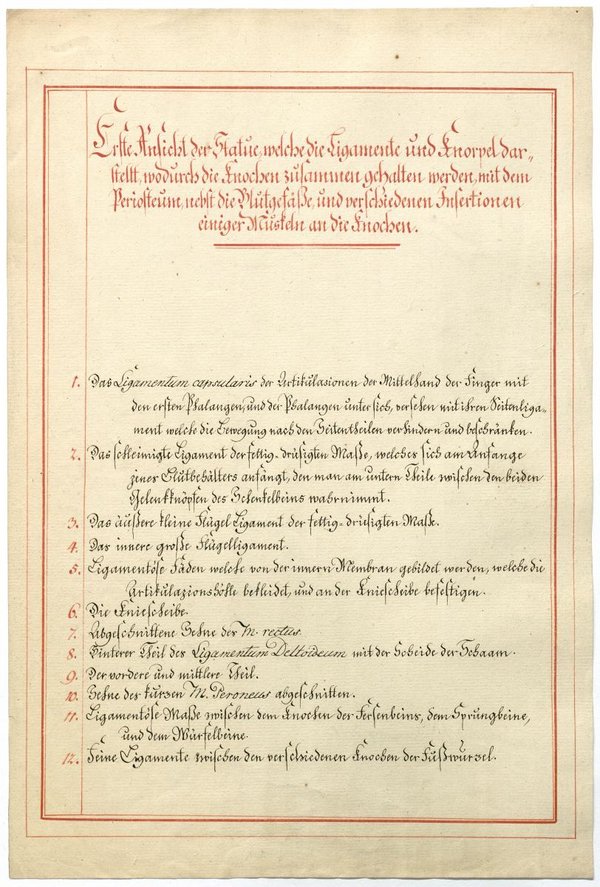 Erste Ansicht der Statue, welche die Ligamente und Knorpel dar=
stellt, wodurch die Knochen zusammen gehalten werden, mit dem
Periosteum, nebst die Blutgefäße, und verschiedenen Insertionen
einiger Muskeln an die Knochen.
1. Das Ligamentum capsularis der Artikulasionen der Mittelhand der Finger mit
den ersten Phalangen, und der Phalangen unter sich, versehen mit ihren Seitenliga=
ment welche die Bewegung nach den Seitentheilen verhindern und beschränken.
2. Das schleimigte Ligament der fettig-drüsigten Maße, welches sich am Anfange
jener Blutbehälters anfängt, den man am untern Theile zwischen den beiden
Gelenkknöpfen des Schenkelbeins wahrnimmt.
3. Das äußere kleine Flügel Ligament der fettig-driesigten Maße.
4. Das innere große Flügelligament.
5. Ligamentöse Fäden welche von der innern Membran gebildet werden, welche die
Artikulazionshölle bekleidet, und an der Kniescheibe befestigen.
6. Die Kniescheibe.
7. Abgeschnittene Sehne des M. rectus.
8. Hinterer Theil des Ligamentum Deltoideum mit der Scheide der
9. Der vordere und mittlere Theil.
10. Sehne des kurzen M. Peroneus abgeschnitten.
11. Ligamentöse Maße zwischen dem Knochen des Fersenbeins, dem Sprungbeine,
und dem Würfelbeine.
12. Feine Ligamente zwischen den verschiedenen Knochen der Fußwurzel.